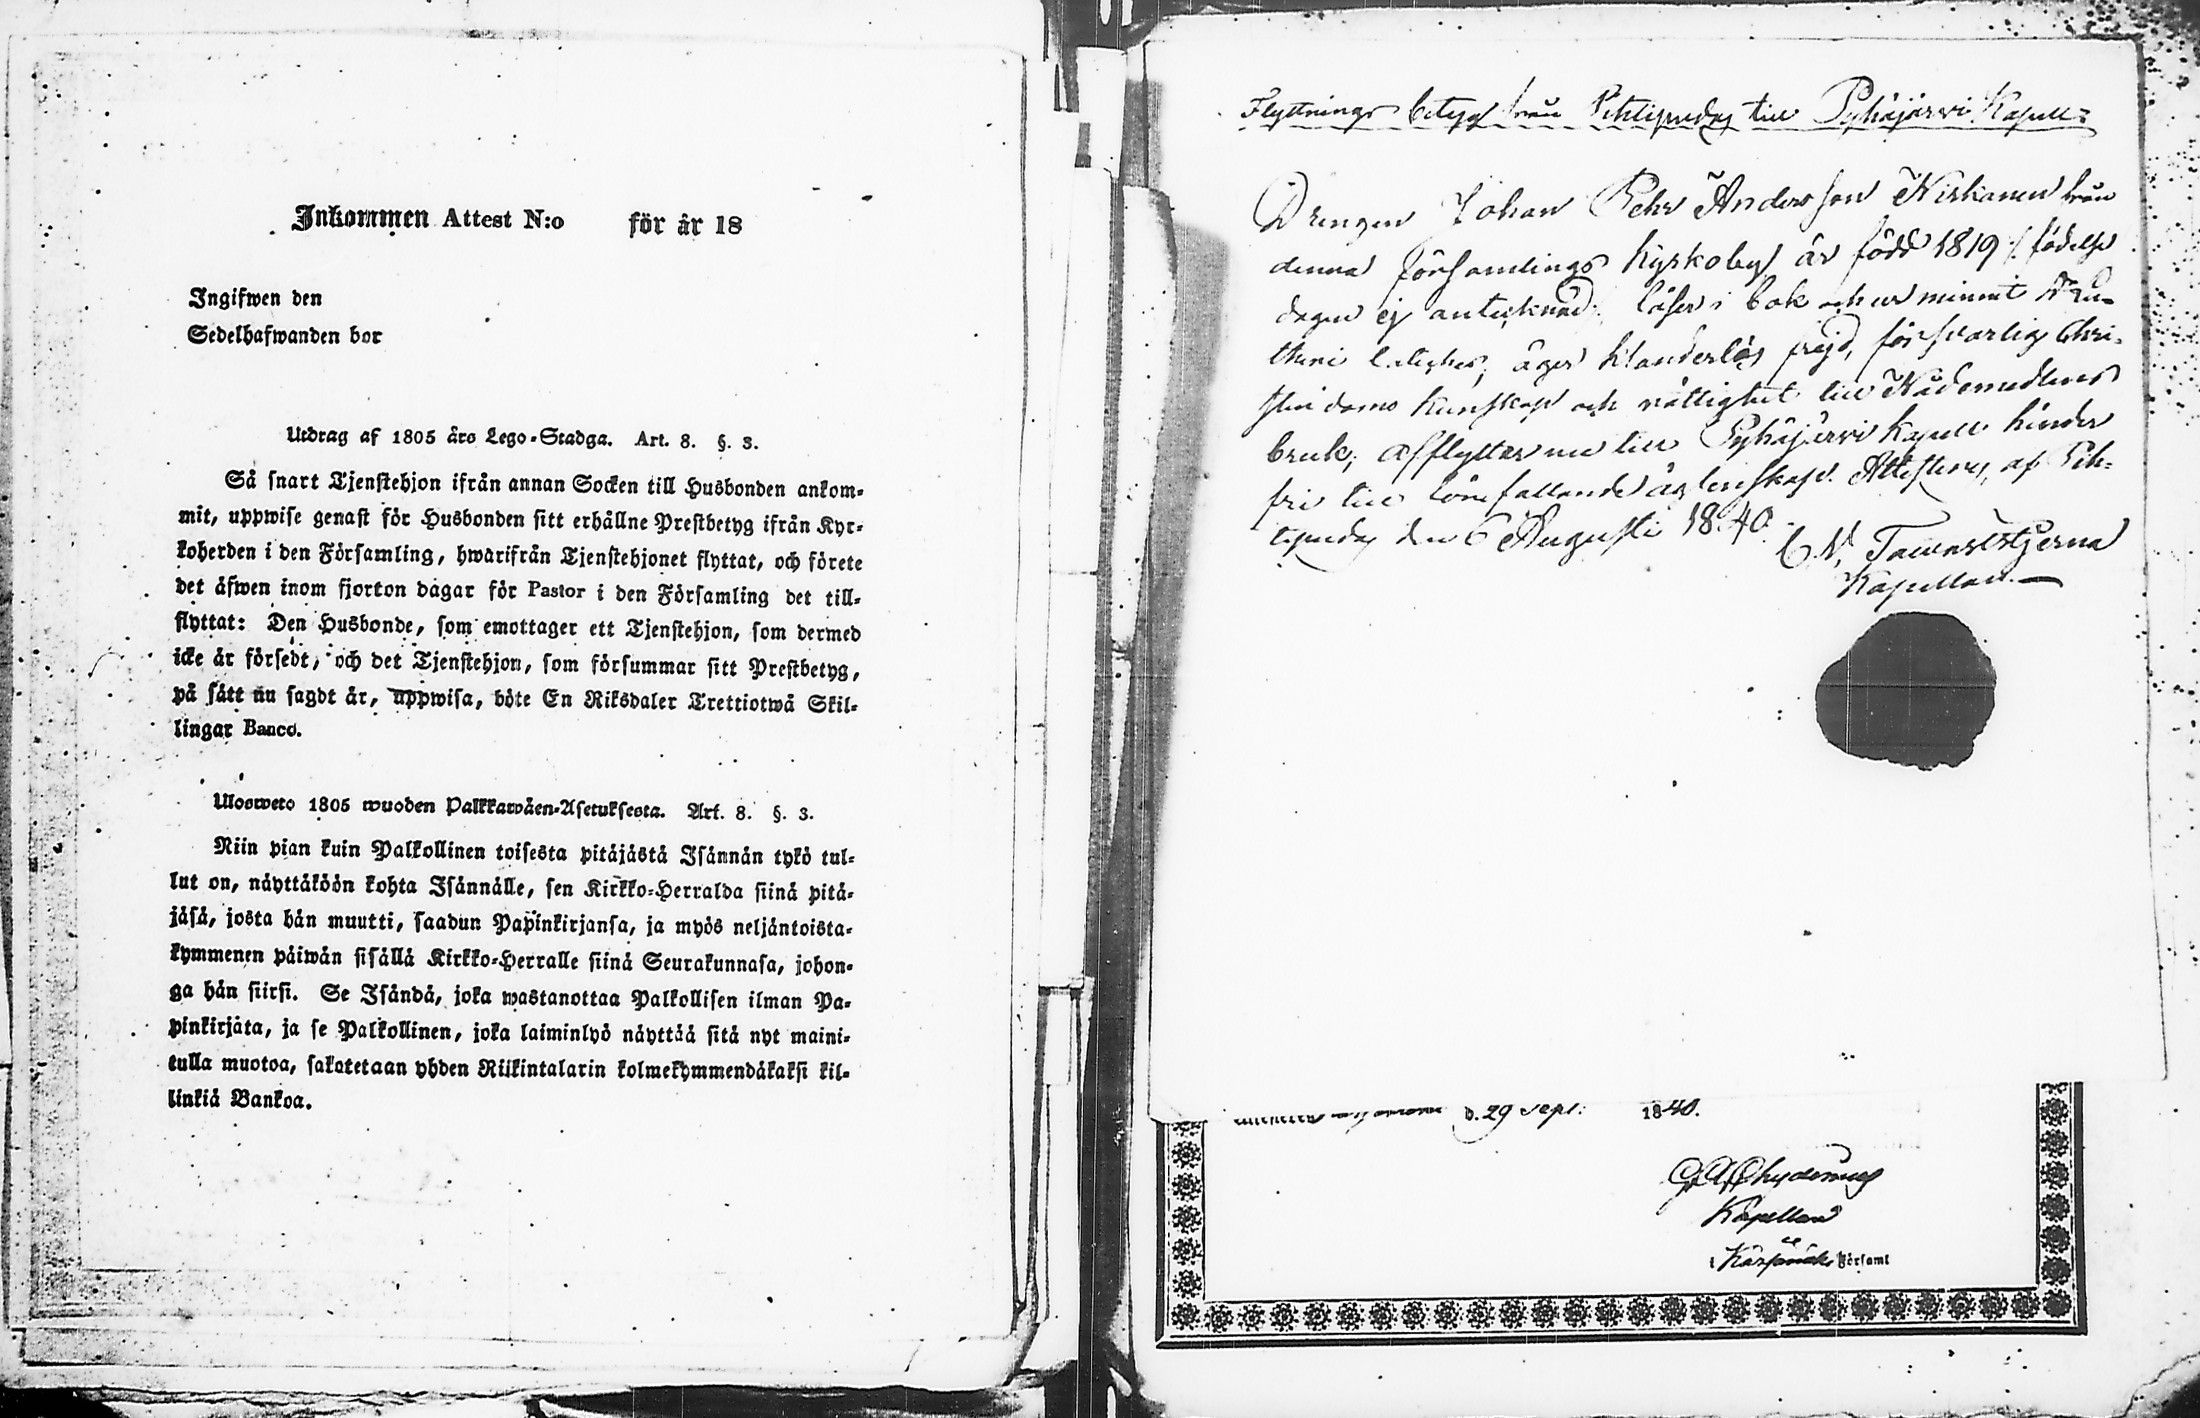 Inkommen Attest N:o för år 18
Ingifwen den
Sedelhafwanden bor
Utdrag af 1805 års Lego-Stadga. Art. 8. §. 3.
Så snart Tjenstehjon ifrån annan Socken till Husbonden ankom-
mit, uppwise genast för Husbonden sitt erhållne Prestbetyg ifrån Kyr-
koherden i den Församling, hwarifrån Tjenstehjonet flyttat, och förete
det äfwen inom fjorton dagar för Pastor i den Församling det till-
flyttat: Den Husbonde, som emottager ett Tjenstehjon, som dermed
icke är försedt, och det Tjenstehjon, som försummar sitt Prestbetyg,
på sätt nu sagdt är, uppwisa, böte En Riksdaler Trettiotwå Skil-
lingar Banco.
Ulosweto 1805 wuoden Palkkawäen-Asetuksesta. Art. 8. §. 3.
Niin pian kuin Palkollinen toisesta pitäjästä Isännän tykö tul-
lut on, näyttäköön kohta Isännälle, sen Kirkko-Herralda siinä pitä-
jäsä, josta hän muutti, saadun Papinkirjansa, ja myös neljäntoista-
kymmenen päiwän sisällä Kirkko-Herralle siinä Seurakunnasa, johon-
ga hän siirsi. Se Isändä, joka wastanottaa Palkollisen ilman Pa-
pinkirjata, ja se Palkollinen, joka laiminlyö näyttää sitä nyt maini-
tulla muotoa, sakotetaan yhden Riikintalarin kolmekymmendäkaksi kil-
linkiä Bankoa.
Flyttnings betyg från Pihtipudas till Pyhäjärvi Kapell
Drengen Johan Pehr Andersson Niskanen från
denna församlings Kyrkoby är född 1819 /: födelse
dagen ej antecknad: läser i bok och ur minnet D: Lu-
theri Cateches, äger klanderlös frejd, försvarlig Chri-
stendoms kunskap och rättighet till Nådemedlens
bruk; afflyttar nu till Pyhäjärvi Kapell hinder
fri till äktenskap. Attesteras, af Pih-
tipudas den 6 Augusti 1840.
Tawaststjerna
Kapellan.
d. 29 Sept. 1840.
Chydenius
Kapellan
i Kärsämäki Församl